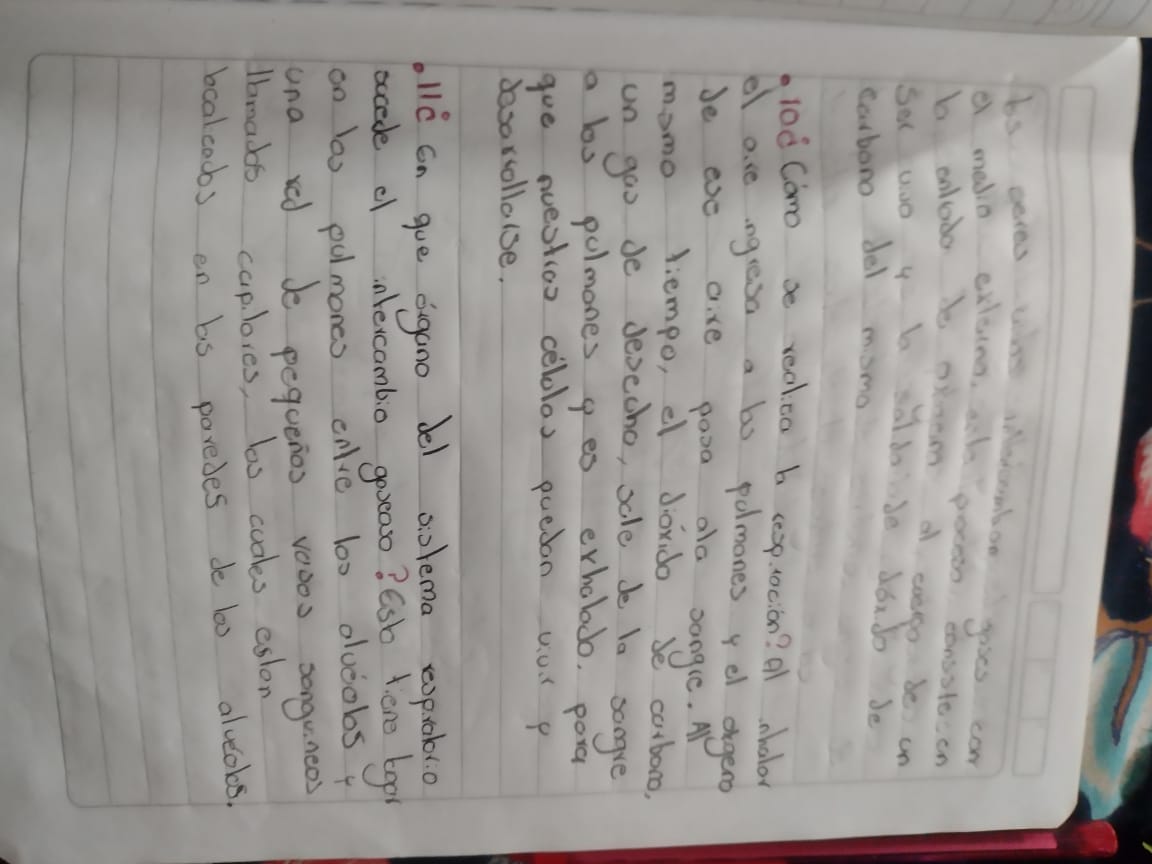 los seres vivos intercambian gases con
el medio externo, este proceso consiste en
la entrada de oxigeno al cuerpo de un
ser vivo y la salida de dióxido de
carbono del mismo
• 10¿ Cómo se realiza la respiración? Al inhalar
el aire ingresa a los pulmones y el oxigeno
de ese aire pasa ala sangre. Al
mismo tiempo, el dióxido de carbono,
un gas de desecho, sale de la sangre
a los pulmones y es exhalado. para
que nuestras células puedan vivir y
desarrollarse.
• 11¿ En que órgano del sistema respiratorio
sucede el intercambio gaseoso? Esto tiene lugar
en los pulmones entre los alvéolos y
una red de pequeños vasos sanguineos
llamados capilares, los cuales estan
localizados en las paredes de los alvéolos.